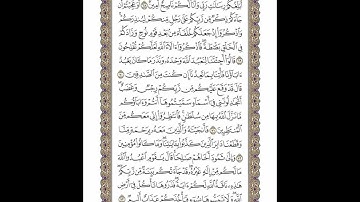 أُبَلِّغُكُمْ رِسَٰلَٰتِ رَبِّي وَأَنَا۠ لَكُمْ نَاصِحٌ أَمِينٌ ٦٨ أَوَعَجِبْتُمْ أَن
جَآءَكُمْ ذِكْرٌ مِّن رَّبِّكُمْ عَلَىٰ رَجُلٍ مِّنكُمْ لِيُنذِرَكُمْ
وَٱذْكُرُوٓا۟ إِذْ جَعَلَكُمْ خُلَفَآءَ مِنۢ بَعْدِ قَوْمِ نُوحٍ وَزَادَكُمْ
فِي ٱلْخَلْقِ بَصْۜطَةً فَٱذْكُرُوٓا۟ ءَالَآءَ ٱللَّهِ لَعَلَّكُمْ تُفْلِحُونَ
٦٩ قَالُوٓا۟ أَجِئْتَنَا لِنَعْبُدَ ٱللَّهَ وَحْدَهُۥ وَنَذَرَ مَا كَانَ يَعْبُدُ
ءَابَآؤُنَا فَأْتِنَا بِمَا تَعِدُنَآ إِن كُنتَ مِنَ ٱلصَّٰدِقِينَ
٧٠ قَالَ قَدْ وَقَعَ عَلَيْكُم مِّن رَّبِّكُمْ رِجْسٌ وَغَضَبٌ
أَتُجَٰدِلُونَنِي فِيٓ أَسْمَآءٍ سَمَّيْتُمُوهَآ أَنتُمْ وَءَابَآؤُكُم
مَّا نَزَّلَ ٱللَّهُ بِهَا مِن سُلْطَٰنٍ فَٱنتَظِرُوٓا۟ إِنِّي مَعَكُم مِّنَ
ٱلْمُنتَظِرِينَ ٧١ فَأَنجَيْنَٰهُ وَٱلَّذِينَ مَعَهُۥ بِرَحْمَةٍ مِّنَّا
وَقَطَعْنَا دَابِرَ ٱلَّذِينَ كَذَّبُوا۟ بِـَٔايَٰتِنَا وَمَا كَانُوا۟ مُؤْمِنِينَ
٧٢ وَإِلَىٰ ثَمُودَ أَخَاهُمْ صَٰلِحًا قَالَ يَٰقَوْمِ ٱعْبُدُوا۟ ٱللَّهَ
مَا لَكُم مِّنْ إِلَٰهٍ غَيْرُهُۥ قَدْ جَآءَتْكُم بَيِّنَةٌ مِّن رَّبِّكُمْ
هَٰذِهِۦ نَاقَةُ ٱللَّهِ لَكُمْ ءَايَةً فَذَرُوهَا تَأْكُلْ فِيٓ أَرْضِ
ٱللَّهِ وَلَا تَمَسُّوهَا بِسُوٓءٍ فَيَأْخُذَكُمْ عَذَابٌ أَلِيمٌ ٧٣